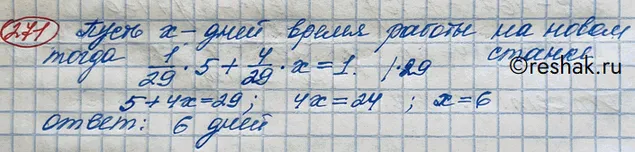 271 Пусть x - дней время работы на новом
тогда 1/29 · 5 + 4/29 · x = 1. | · 29 станке
©reshak.ru
5 + 4x = 29; 4x = 24 ; x = 6
ответ: 6 дней